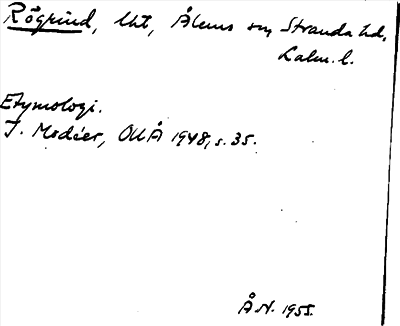 Rögrind, lht, Ålems sn, Stranda hd,
Kalm. l.
Etymologi.
I. Modéer, OUÅ 1948, s. 35.
Å N. 1955.